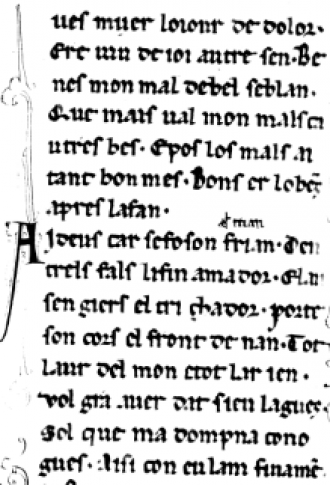 ues muer lo ior de dolor.
Ere uiu de ioi autre sen. Be
nes mon mal de bel seblan.
Que mais ual mon mals q
utres bes. E pos los mals an
tant bon mes. Bons er lo bes
apres lafan.
Ai deus car se foson trian. Den
trels fals li fin amador. E lau
sengiers el trichador. portes
son cors el front de nan. Tot
Laur del mon e tot largen.
uol gra auer dat sieu lagues.
Sol que ma dompna cono
gues. Aisi con eu lam finamen.